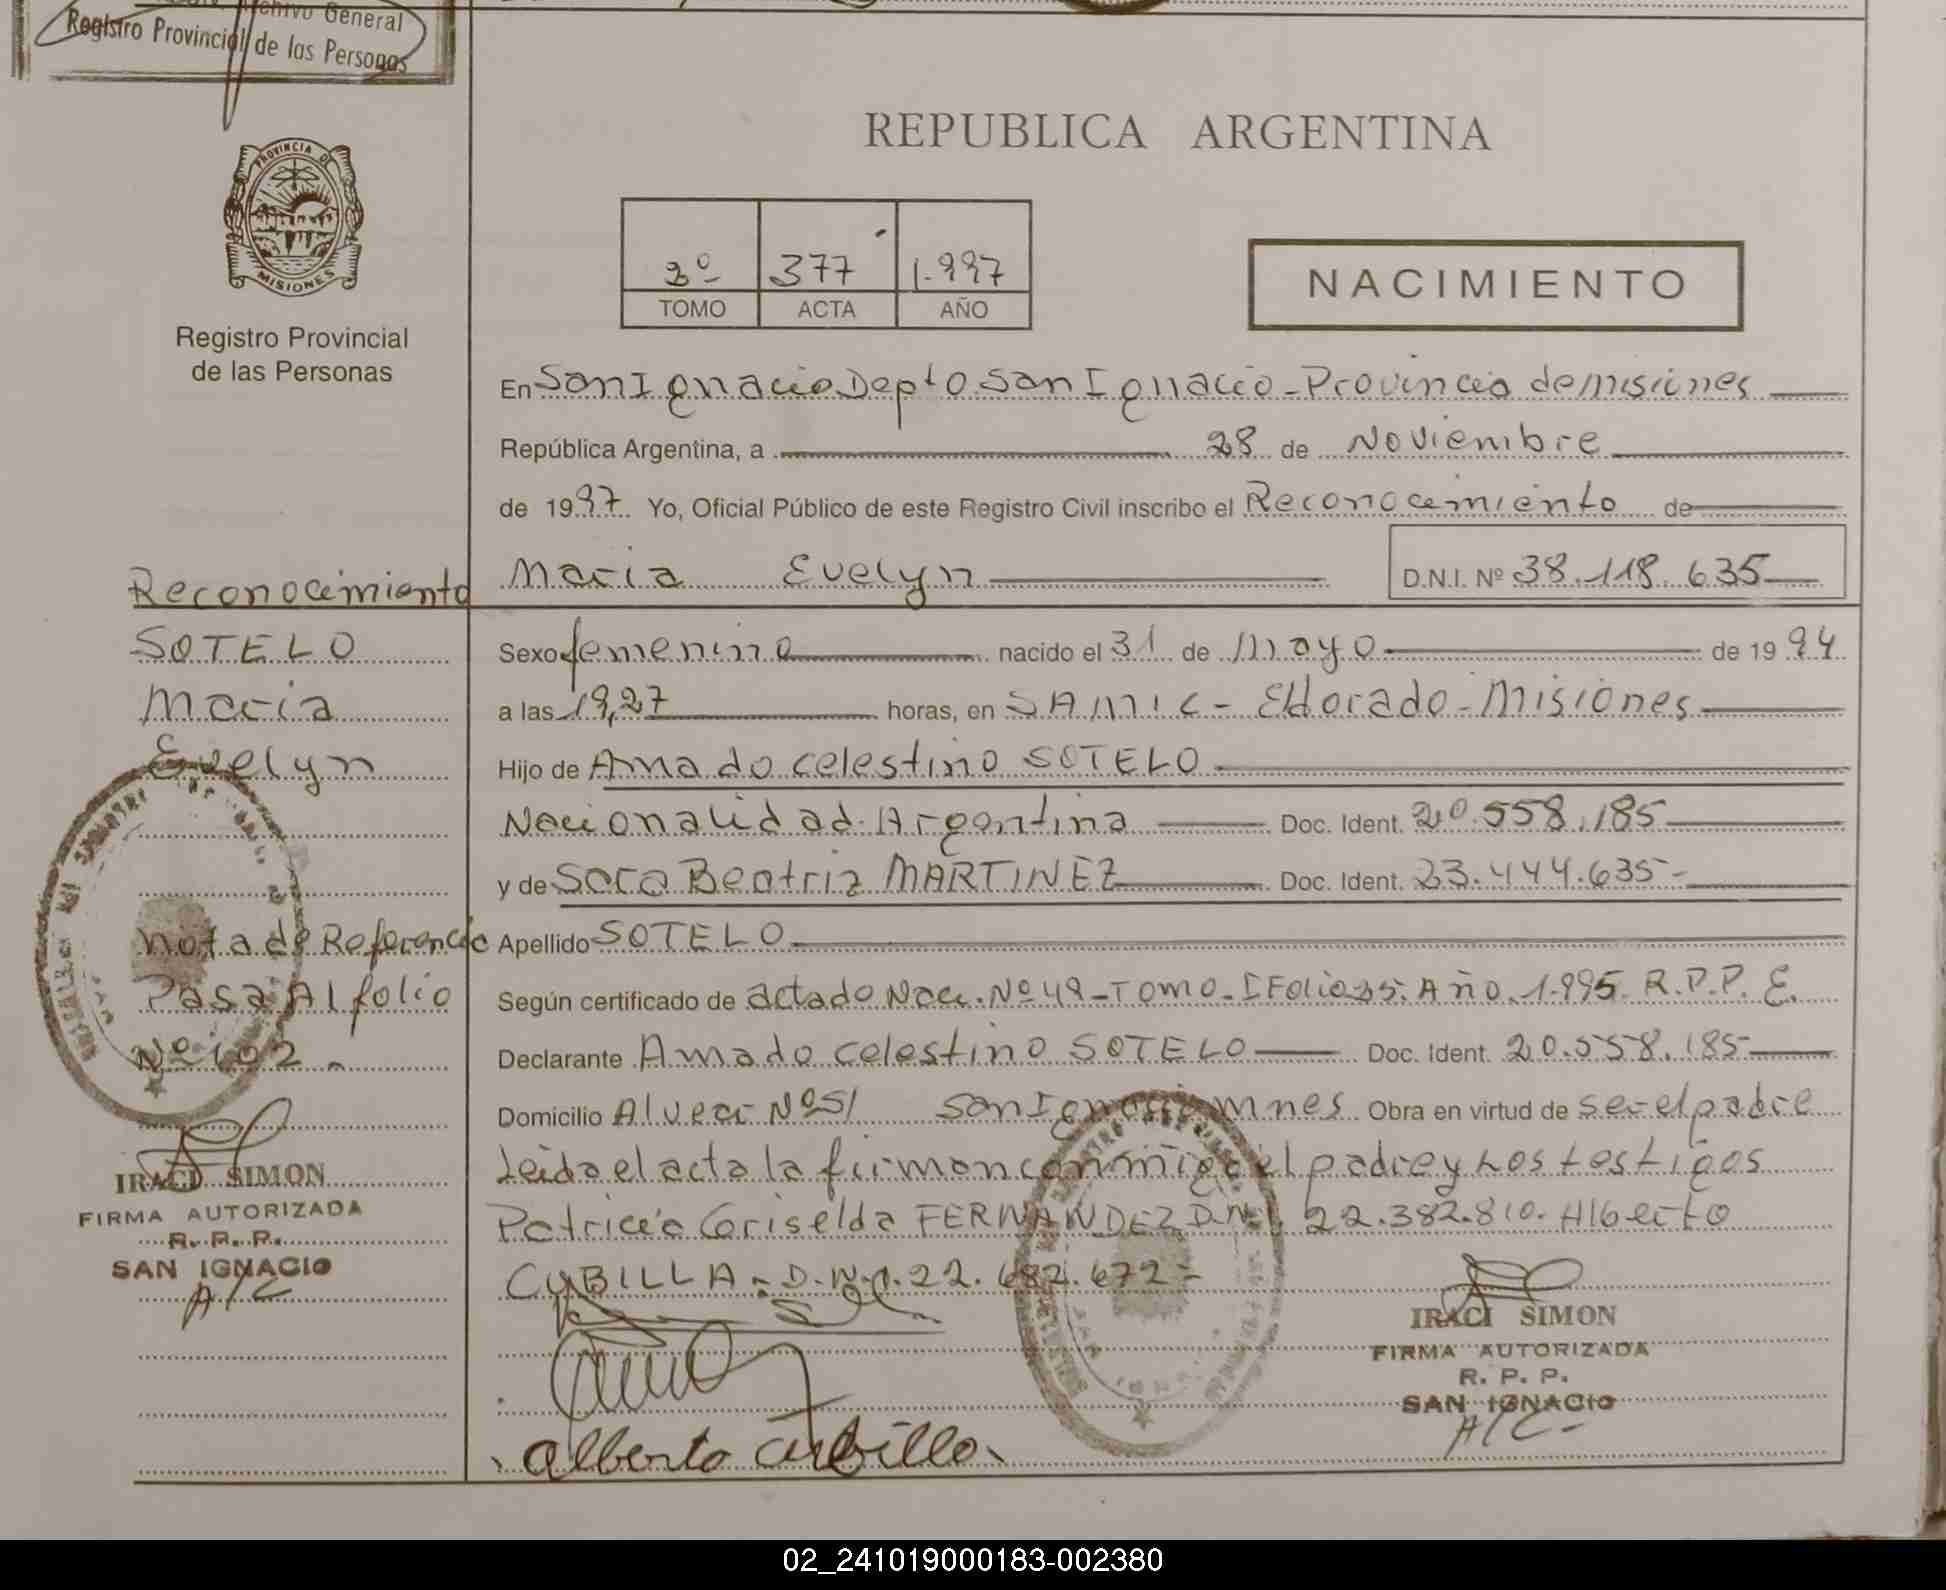 Archivo General
Registro Provincial de las Personas
REPUBLICA ARGENTINA
PROVINCIA DE
MISIONES
Registro Provincial
de las Personas
3º 377 1.997
TOMO ACTA AÑO
NACIMIENTO
En San Ignacio Depto San Ignacio - Provincia de misiones
República Argentina, a 28 de Noviembre
de 1997 Yo, Oficial Público de este Registro Civil inscribo el Reconocimiento de
Maria Evelyn D.N.I. Nº 38.118.635
Reconocimiento
SOTELO
Maria
Evelyn
Nota de Referencia
Pasa Al folio
Nº 102 -
IRACI SIMON
FIRMA AUTORIZADA
R. P. P.
SAN IGNACIO
A/C
Sexo femenino nacido el 31 de mayo de 1994
a las 19,27 horas, en SAMIC - Eldorado - Misiones
Hijo de Amado Celestino SOTELO
Nacionalidad Argentina Doc. Ident. 20.558.185
y de Sara Beatriz MARTINEZ Doc. Ident. 23.444.635-
Apellido SOTELO
Según certificado de acta de Nac. Nº 49 - Tomo - I Folio 35. Año 1.995 R.P.P. E.
Declarante Amado Celestino SOTELO Doc. Ident. 20.558.185
Domicilio Alvear Nº 51 San Ignacio Mnes Obra en virtud de ser el padre
Leida el acta la firman conmigo el padre y Los testigos
Patricia Griselda FERNANDEZ D.N.I. 22.382.810. Alberto
CUBILLA - D.N.I. 22.682.672 -
Alberto Cubilla
IRACI SIMON
FIRMA AUTORIZADA
R. P. P.
SAN IGNACIO
A/C -
02_241019000183-002380